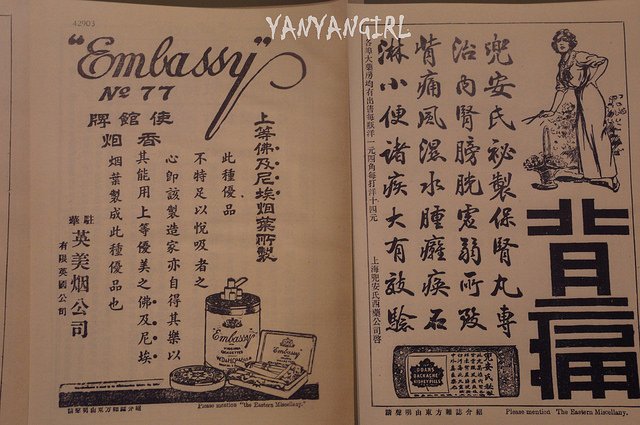 YANYANGIRL
42903
"Embassy"
Nº 77
使館牌
香烟
上等佛及尼埃烟葉所製
此種優品
不特足以悅吸者之
心即該製造家亦自得其樂以
其能用上等優美之佛及尼埃
烟葉製成此種優品也
駐華
英美烟公司
有限英國公司
Embassy
Embassy
請聲明由東方雜誌介紹
Please mention "the Eastern Miscellany."
背痛
兜安氏祕製保腎丸專
治內腎膀胱虛弱所致
背痛風濕水腫癱瘓石
淋小便諸疾大有效驗
各埠大藥房均有出售每瓶洋一元四角每打洋十四元
上海兜安氏西藥公司啓
DOANS
BACKACHE
KIDNEY PILLS
請聲明由東方雜誌介紹
Please mention The Eastern Miscellany.